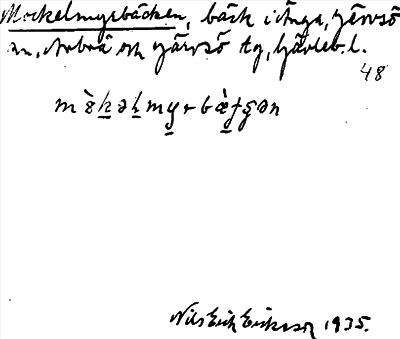 Mockelmyrbäcken, bäck i Änga, Järvsö
sn, Arbrå och Järvsö tg, Gävleb. l.
48
mɛ̀kəlmyrbæ̀tʃən
Nils Erik Eriksson 1935.